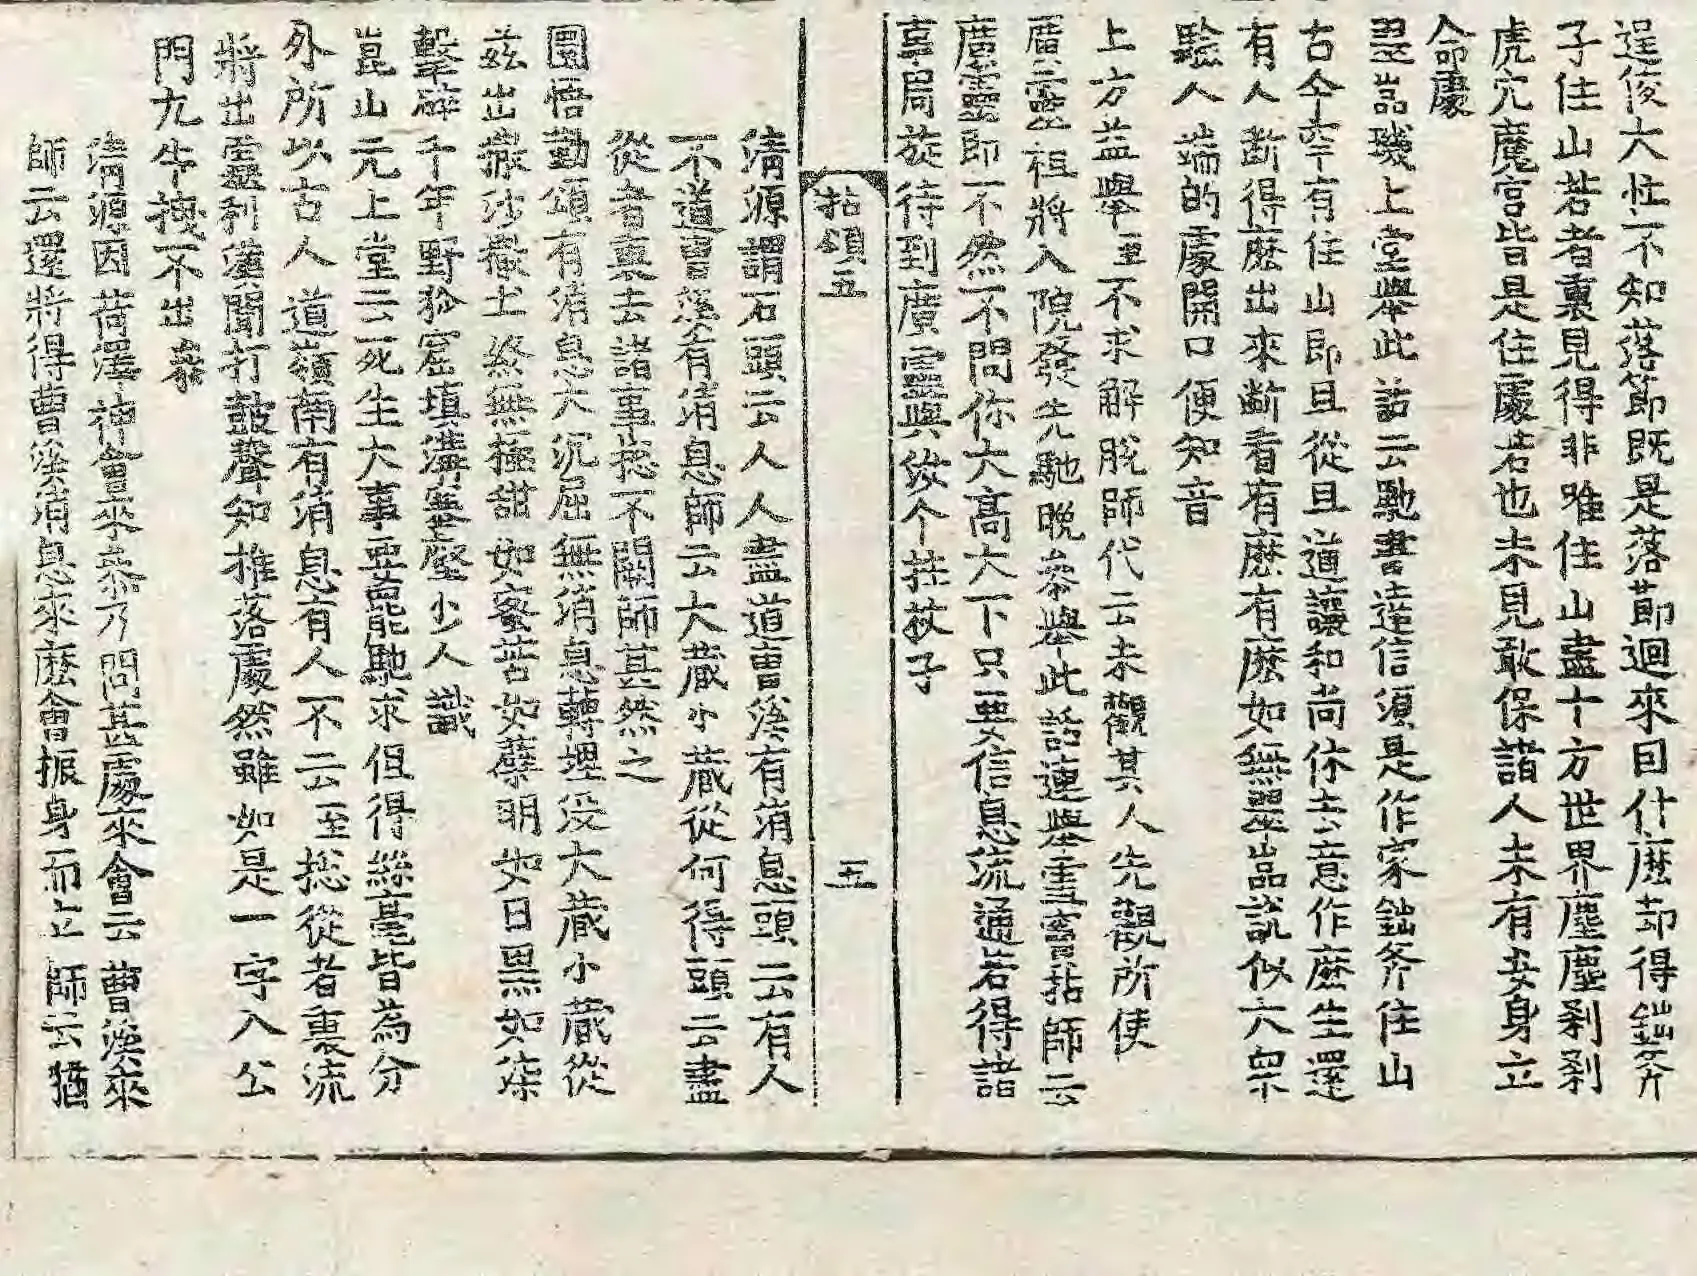 逞俊大性不知落節既是落節迴來因什麽却得鈯斧
子住山若者裏見得非唯住山盡十方世界塵塵刹刹
虎穴魔宮皆是住處若也未見敢保諸人未有安身立
命處
翠嵓璣上堂擧此話云馳書達信須是作家鈯斧住山
古今罕有住山即且從且道讓和尚休去意作麽生還
有人斷得麽出來斷看有麽有麽如無翠嵓試似大衆
驗人端的處開口便知音
上方益擧至不求解脫師代云未觀其人先觀所使
廣靈祖將入院發先馳晩叅擧此話連擧雪竇拈師云
廣靈即不然不問你大高大下只要信息流通若得諸
事周旋待到廣靈與汝个拄杖子
拈頌五
五
淸源謂石頭云人人盡道曺溪有消息頭云有人
不道曺溪有消息師云大藏小藏從何得頭云盡
從者裏去諸事揔不闕師甚然之
圜悟勤頌有消息大沉屈無消息轉埋沒大藏小藏從
茲出撒沙撒土終無極甜如蜜苦如蘖明如日黑如柒
擊碎千年野狐窟填溝塞壑少人識
崑山元上堂云死生大事要能馳求但得絲毫皆爲分
外所以古人道嶺南有消息有人不云云至揔從者裏流
將出靈利漢聞打鼓聲知推落處然雖如是一字入公
門九牛拽不出叅
淸源因荷澤神會來叅乃問甚處來會云曺溪來
師云還將得曺溪消息來麽會振身而立師云猶